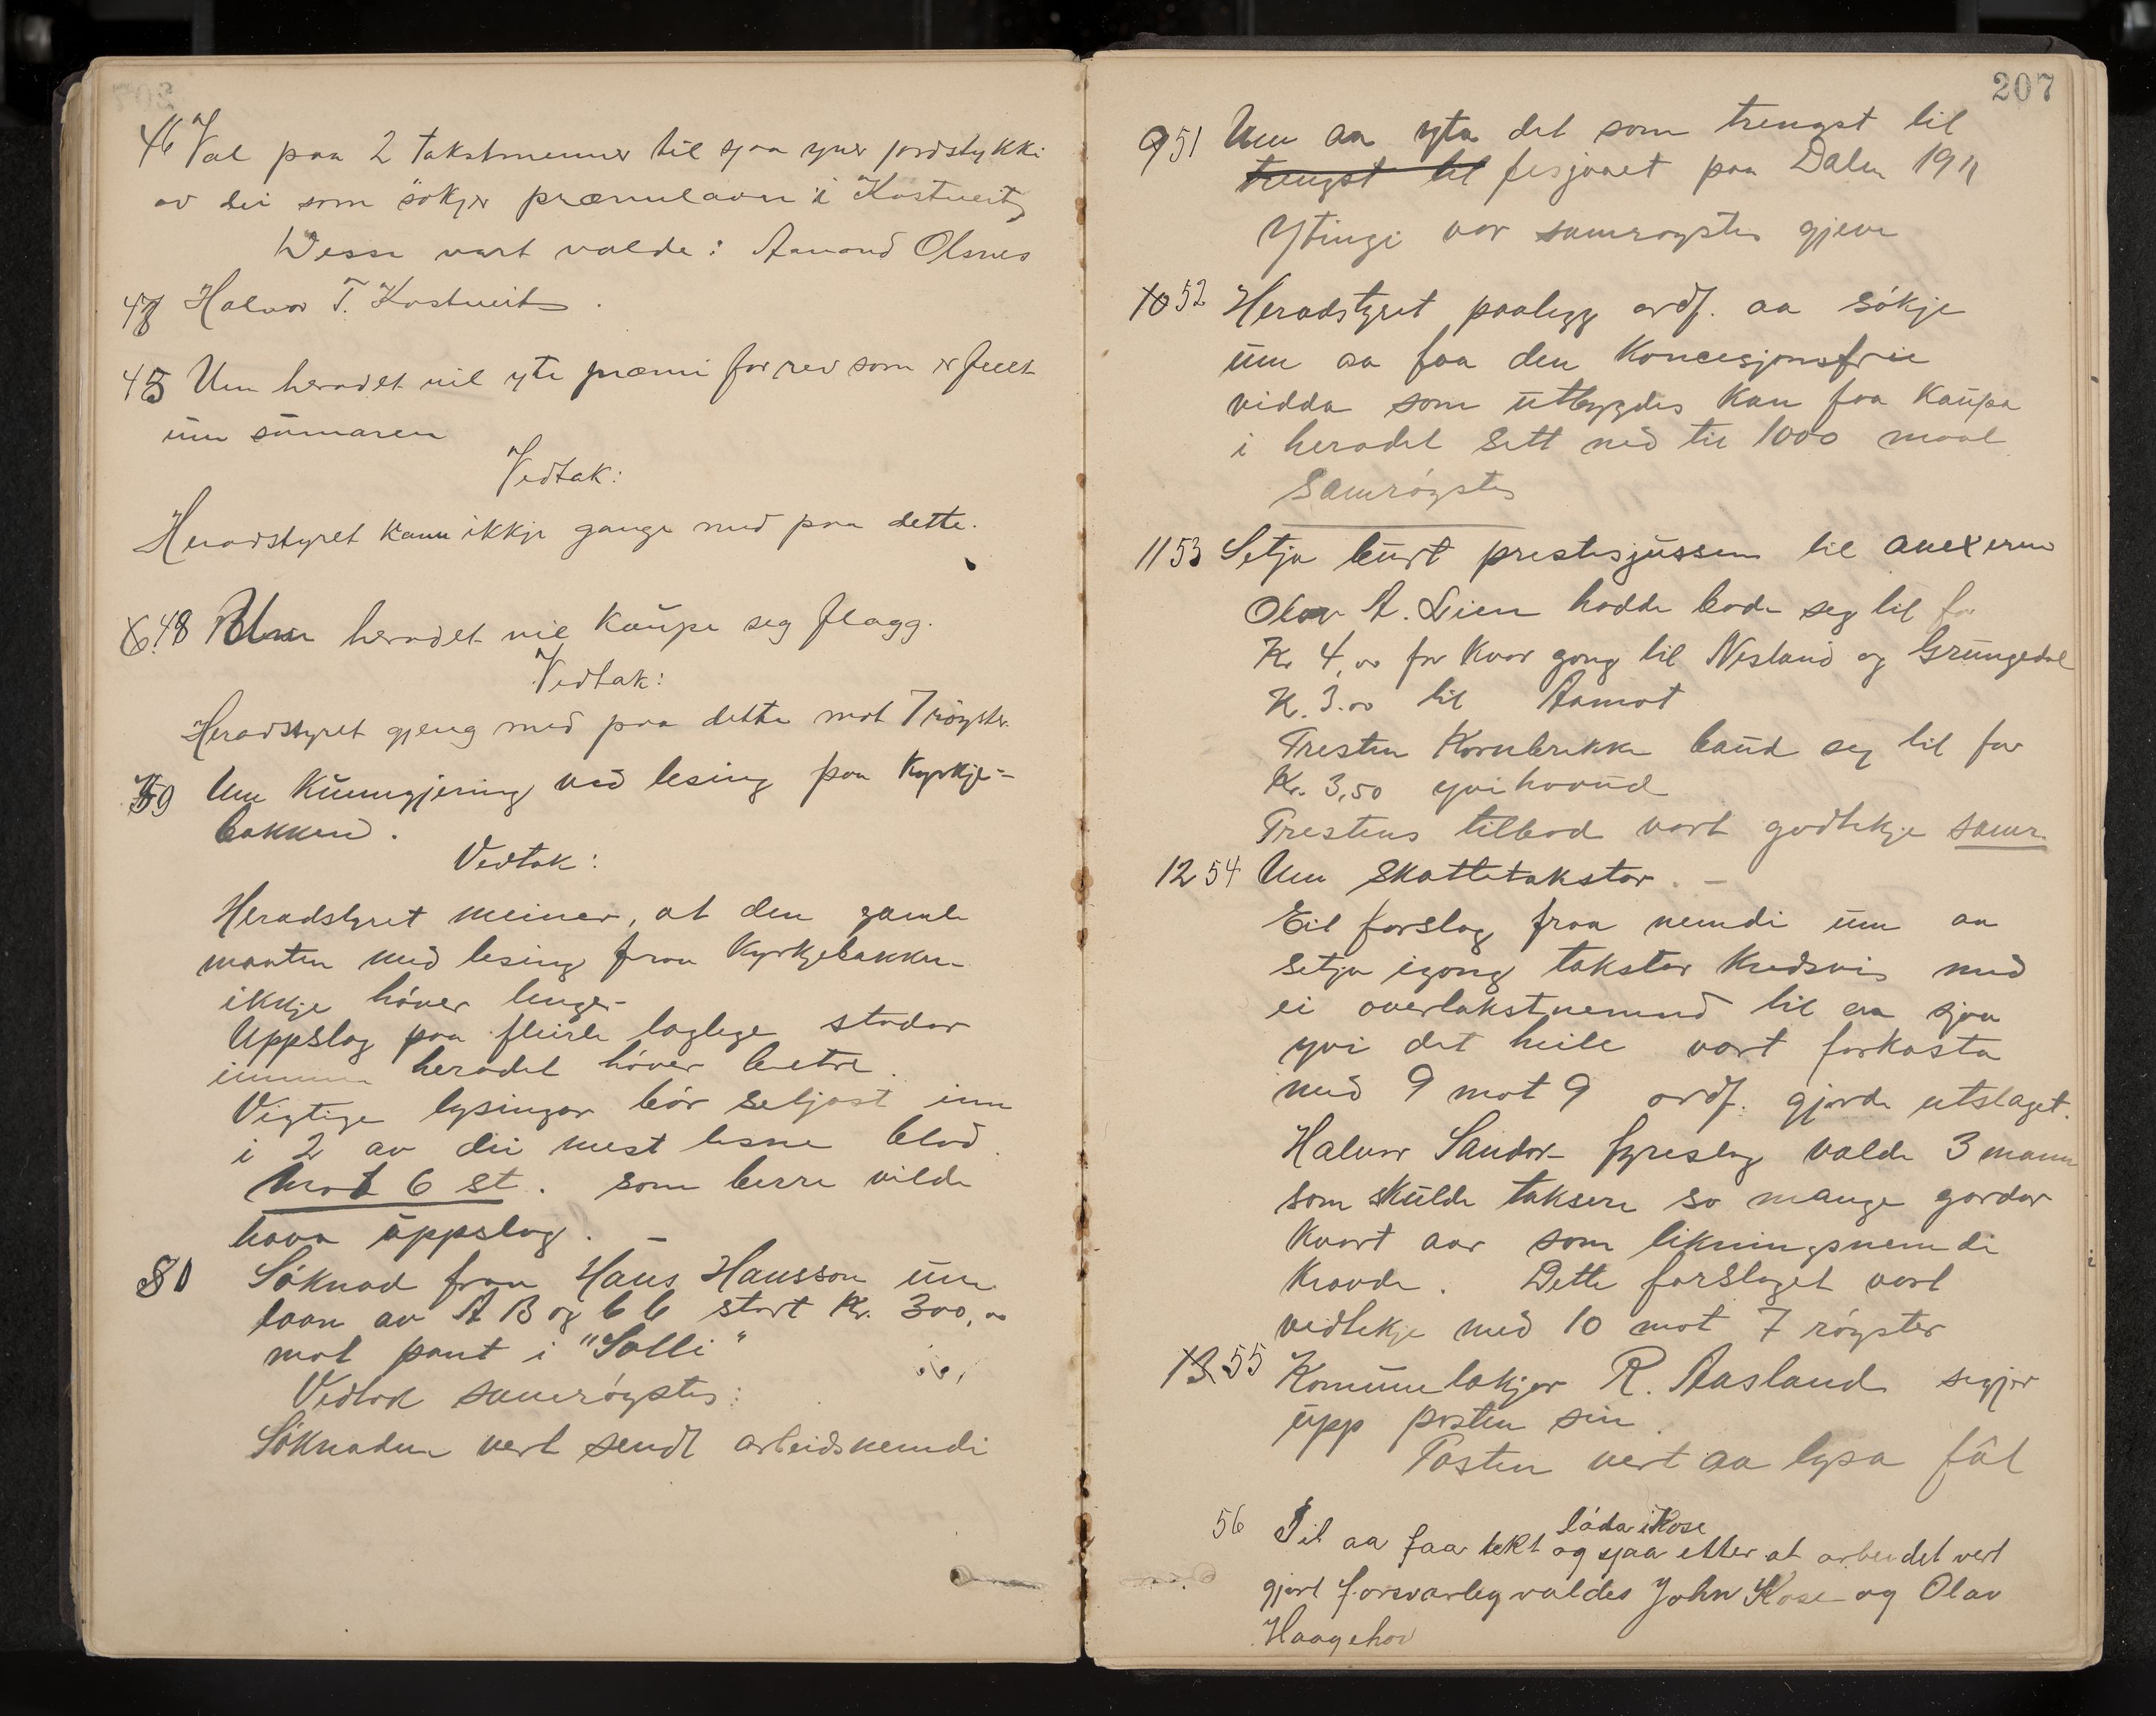 46 Val paa 2 takstmenner til sjaa yver jordstykki
av dei som søkjer præmielaan i Kostveit
Desse vart valde: Aamond Olsnes
47 Halvor T. Kostveit.
45 Um heradet vil yte præmi for rev som er felt
um sumaren
Vedtak:
Heradstyret kann ikkje gange med paa dette.
6.48 Um heradet vil kaupe seg flagg.
Vedtak:
Heradstyret gjeng med paa dette mot 7 røyster.
Um kunngjering ved lesing paa kyrkje-
bakken.
Vedtak:
Heradstyret meiner, at den gamle
maaten med lesing fraa kyrkjebakken
ikkje høver lenger
Uppslag paa fleirle laglege stadar
heradet høver betre.
Vigtige lysingar bør setjast inn
i 2 av dei mest lesne blad.
mot 6 st. som berre vilde
hava uppslag. —
Søknad fraa Hans Hansson um
laan av A B og C C stort Kr. 300,00
mot pant i "Solli"
Vedtak samrøystes:
Søknaden vert sendt arbeidsnemdi
207
9 51 Um aa yta det som trengst til
trengst til fesjaaet paa Dalen 1911
Ytingi var samrøystes gjeve
10 52 Heradstyret paalegg ordf. aa søkje
um aa faa den koncesjonsfrie
vidda som utbygdes kan faa kaupa
i heradet sett ned til 1000 maal
Samrøystes
11 53 Setja burt prestesjussen til anexerne
Olav A. Lien hadde bode seg til for
Kr 4,00 for kvar gong til Nesland og Grungedal
K. 3.00 til Aamot
Tresten Kornbrekke baud seg til for
Kr. 3,50 yvihovud
Trestens tilbod vart godtekje samr.
12 54 Um skattetakstar. —
Eit forslag fraa nemdi um aa
setja igong takstar kredsvis med
ei overtakstnemnd til aa sjaa
yvi det heile vart forkasta
med 9 mot 9 ordf. gjorde utslaget.
Halvor Sandor fyreslag valde 3 mann
som skulde taksere so mange gardar
kvart aar som likningsnemdi
kravde. Dette forslaget vart
vedtekje med 10 mot 7 røyster
13. 55 Komunelækjar R. Aasland segjer
upp posten sin.
Posten vert aa lysa fål
løda i Kose
56 Til aa faa tekt og sjaa etter at arbeidet vert
gjort forsvarleg valdes John Kose og Olav
Haagehov